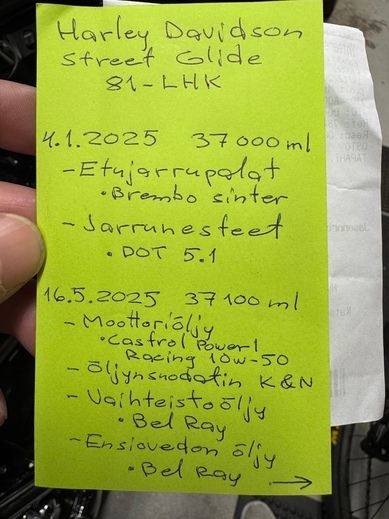 Harley Davidson
Street Glide
81-LHK
4.1.2025 37000 ml
- Etujarrupalat
• Brembo sinter
- Jarrunesteet
• DOT 5.1
16.5.2025 37100 ml
- Moottoriöljy
• Castrol Power 1
Racing 10w-50
- Öljynsuodatin K&N
- Vaihteistoöljy
• Bel Ray
- Ensiovedon öljy
• Bel Ray →